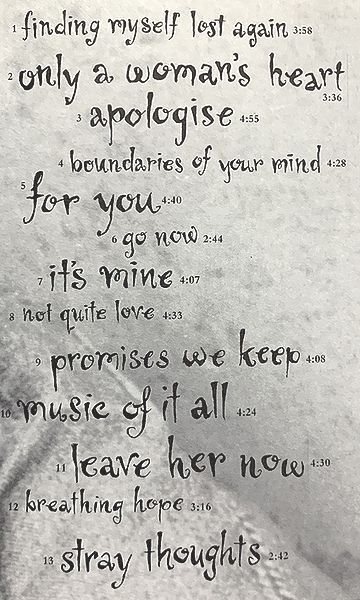 1 finding myself lost again 3:58
2 only a woman's heart 3:36
3 apologise 4:55
4 boundaries of your mind 4:28
5 for you 4:40
6 go now 2:44
7 it's mine 4:07
8 not quite love 4:33
9 promises we keep 4:08
10 music of it all 4:24
11 leave her now 4:30
12 breathing hope 3:16
13 stray thoughts 2:42